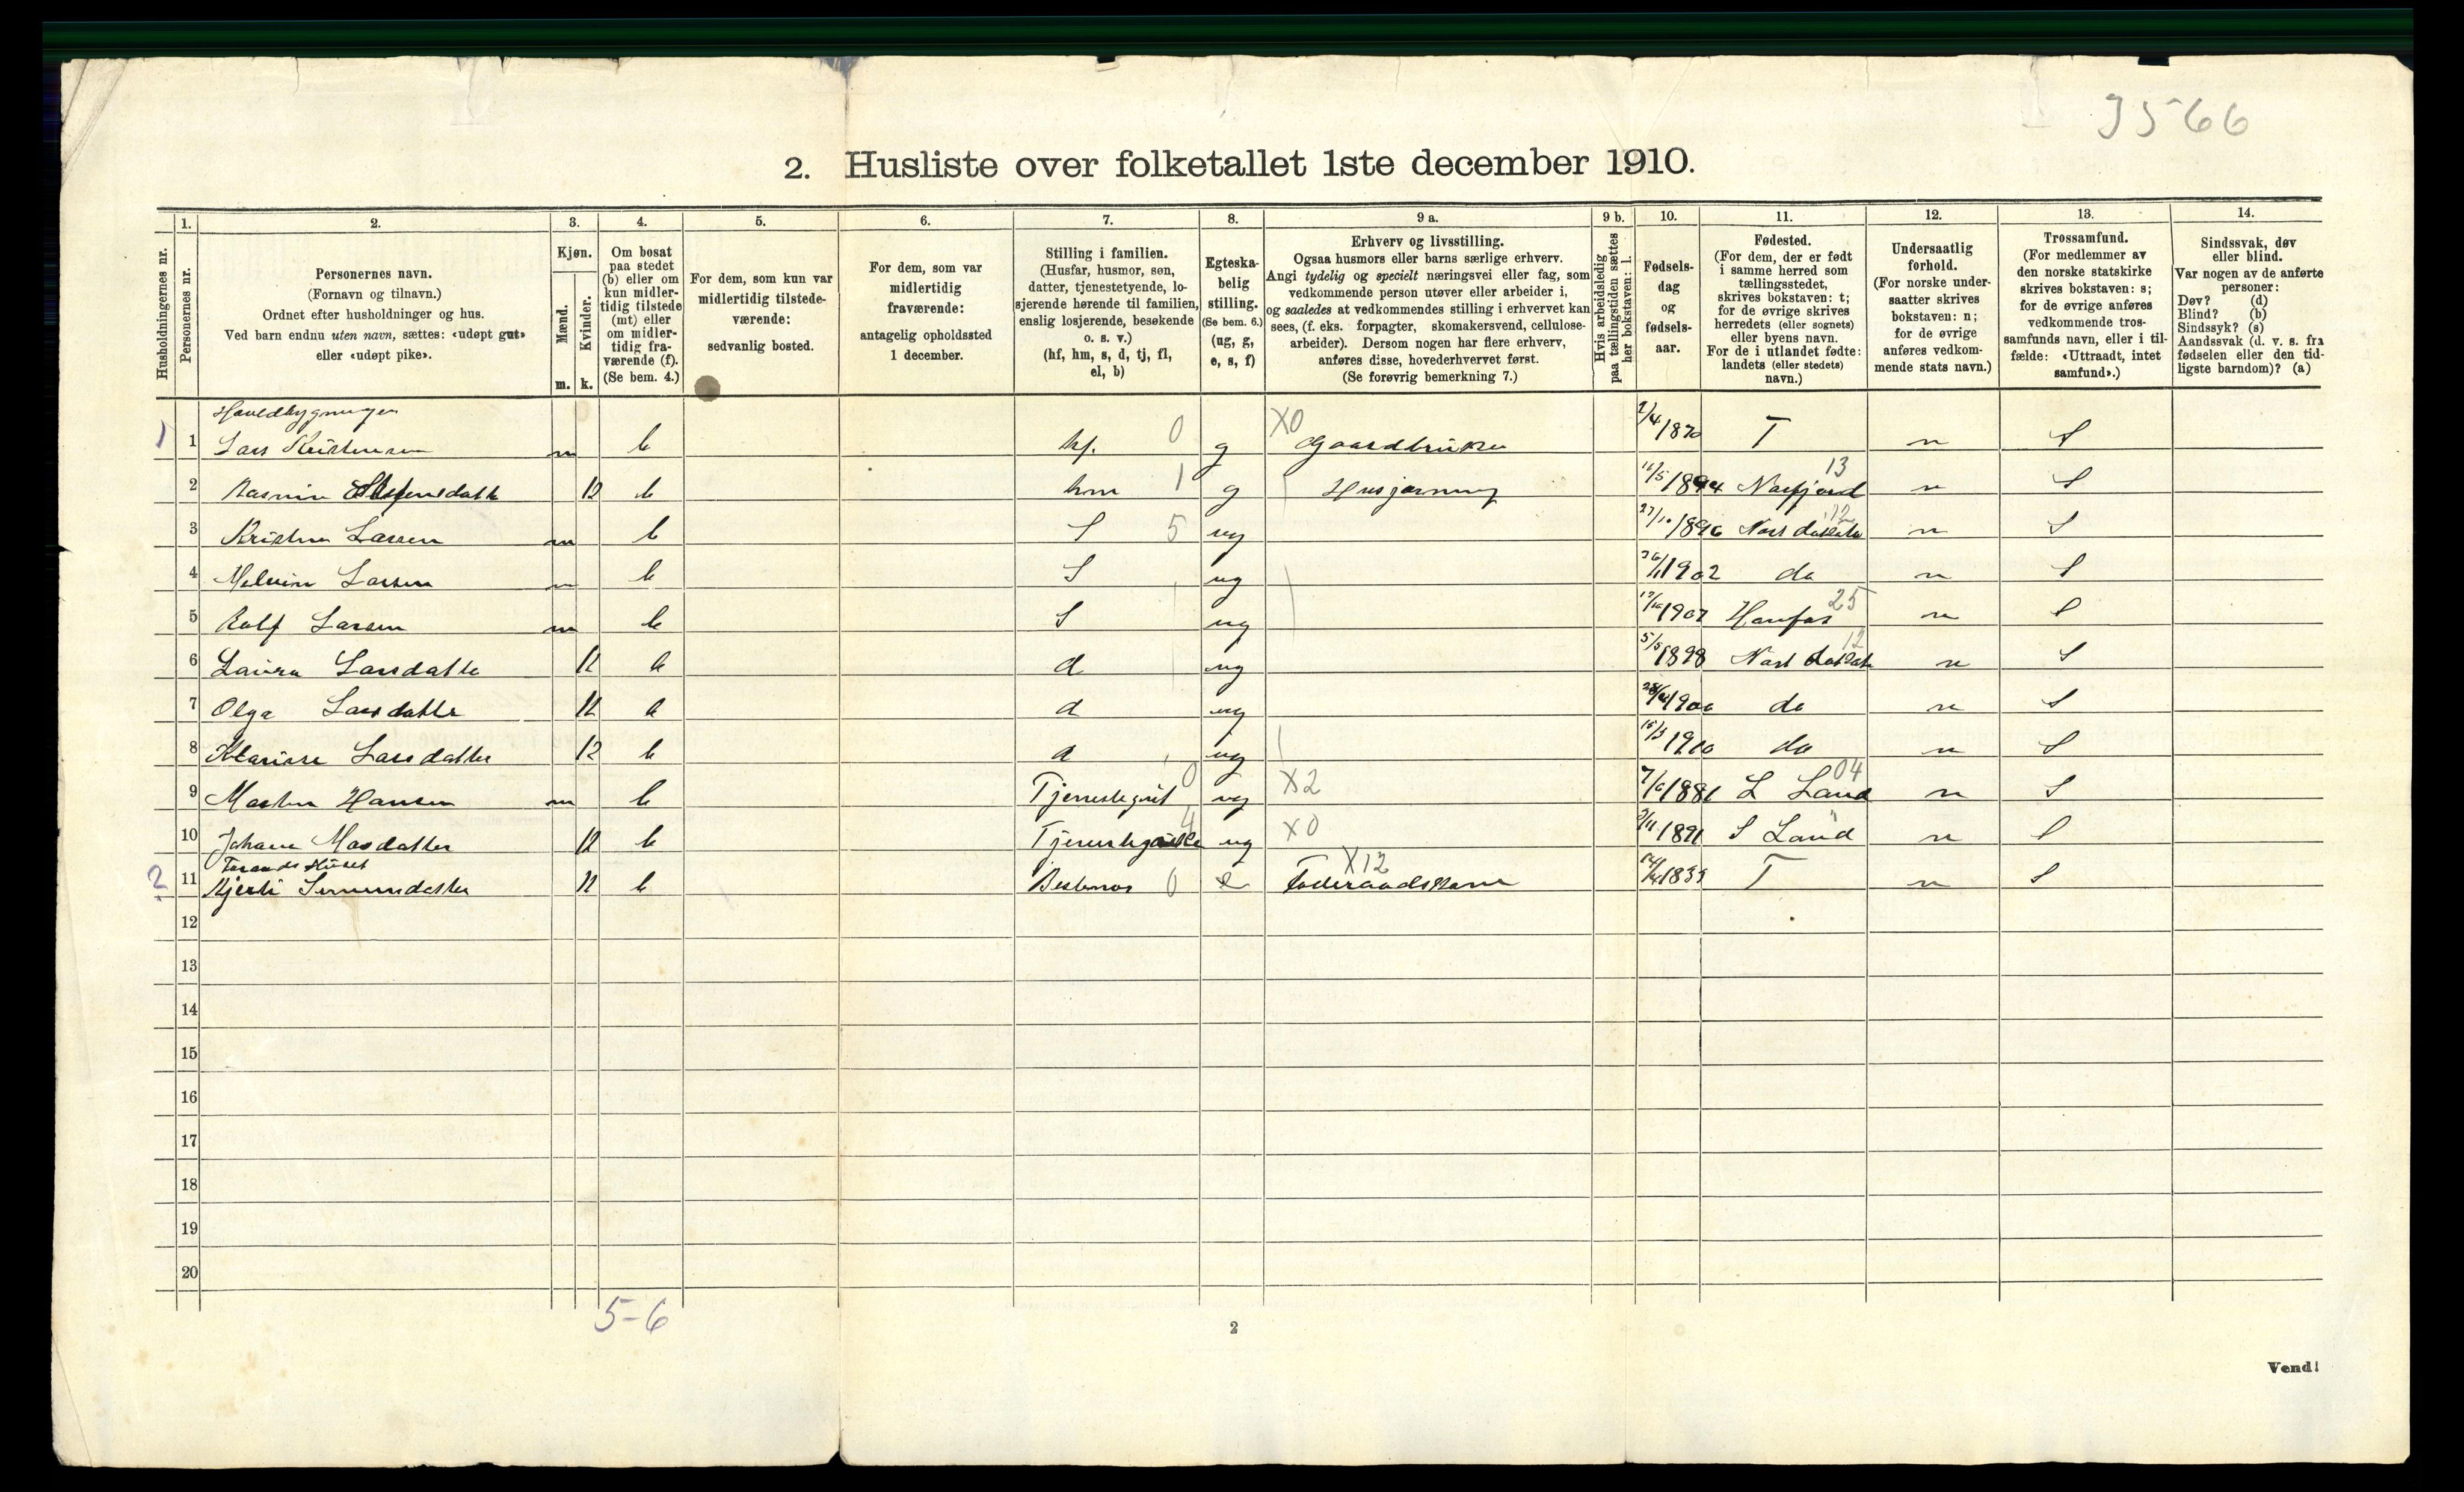 3566
2. Husliste over folketallet 1ste december 1910.
1. 2. 3. 4. 5. 6. 7. 8. 9 a. 9 b. 10. 11. 12. 13. 14.
Husholdningernes nr.
Personernes nr.
Personernes navn.
(Fornavn og tilnavn.)
Ordnet efter husholdninger og hus.
Ved barn endnu uten navn, sættes: «udøpt gut»
eller «udøpt pike».
Kjøn.
Mænd.
m.
Kvinder.
k.
Om bosat
paa stedet
(b) eller om
kun midler-
tidig tilstede
(mt) eller
om midler-
tidig fra-
værende (f).
(Se bem. 4.)
For dem, som kun var
midlertidig tilstede-
værende:
sedvanlig bosted.
For dem, som var
midlertidig
fraværende:
antagelig opholdssted
1 december.
Stilling i familien.
(Husfar, husmor, søn,
datter, tjenestetyende, lo-
sjerende hørende til familien,
enslig losjerende, besøkende
o. s. v.)
(hf, hm, s, d, tj, fl,
el, b)
Egteska-
belig
stilling.
(Se bem. 6.)
(ug, g,
e, s, f)
Erhverv og livsstilling.
Ogsaa husmors eller barns særlige erhverv.
Angi tydelig og specielt næringsvei eller fag, som
vedkommende person utøver eller arbeider i,
og saaledes at vedkommendes stilling i erhvervet kan
sees, (f. eks. forpagter, skomakersvend, cellulose-
arbeider). Dersom nogen har flere erhverv,
anføres disse, hovederhvervet først.
(Se forøvrig bemerkning 7.)
Hvis arbeidsledig
paa tællingstiden sættes
her bokstaven: l.
Fødsels-
dag
og
fødsels-
aar.
Fødested.
(For dem, der er født
i samme herred som
tællingsstedet,
skrives bokstaven: t;
for de øvrige skrives
herredets (eller sognets)
eller byens navn.
For de i utlandet fødte:
landets (eller stedets)
navn.)
Undersaatlig
forhold.
(For norske under-
saatter skrives
bokstaven: n;
for de øvrige
anføres vedkom-
mende stats navn.)
Trossamfund.
(For medlemmer av
den norske statskirke
skrives bokstaven: s;
for de øvrige anføres
vedkommende tros-
samfunds navn, eller i til-
fælde: «Uttraadt, intet
samfund».)
Sindssvak, døv
eller blind.
Var nogen av de anførte
personer:
Døv? (d)
Blind? (b)
Sindssyk? (s)
Aandssvak (d. v. s. fra
fødselen eller den tid-
ligste barndom)? (a)
Hovedbygningen
1 1 Lars Kristensen m b hf. 0 g X0 Gaardbruker 1870 T n S
2 k b hm 1 g Husgjerning 13 n S
3 Kristen Larsen m b S 5 ug 27/10 1896 12 n S
4 Melvin Larsen m b S ug 1902 do n S
5 Rolf Larsen m b S ug 1907 25 n S
6 Laura Larsdatter k b d ug 5/5 1898 12 n S
7 Olga Larsdatter k b d ug 1900 do n S
8 Larsdatter k b d ug 1910 do n S
9 Hansen m b Tjenestegut 0 ug X2 1881 Land 04 n S
10 k b 4 ug X0 1891 S Land n S
2 11 Kjersti k b Bestemor 0 e X12 Føderaadskone T n S
12
13
14
15
16
17
18
19
20
5-6
2
Vend!